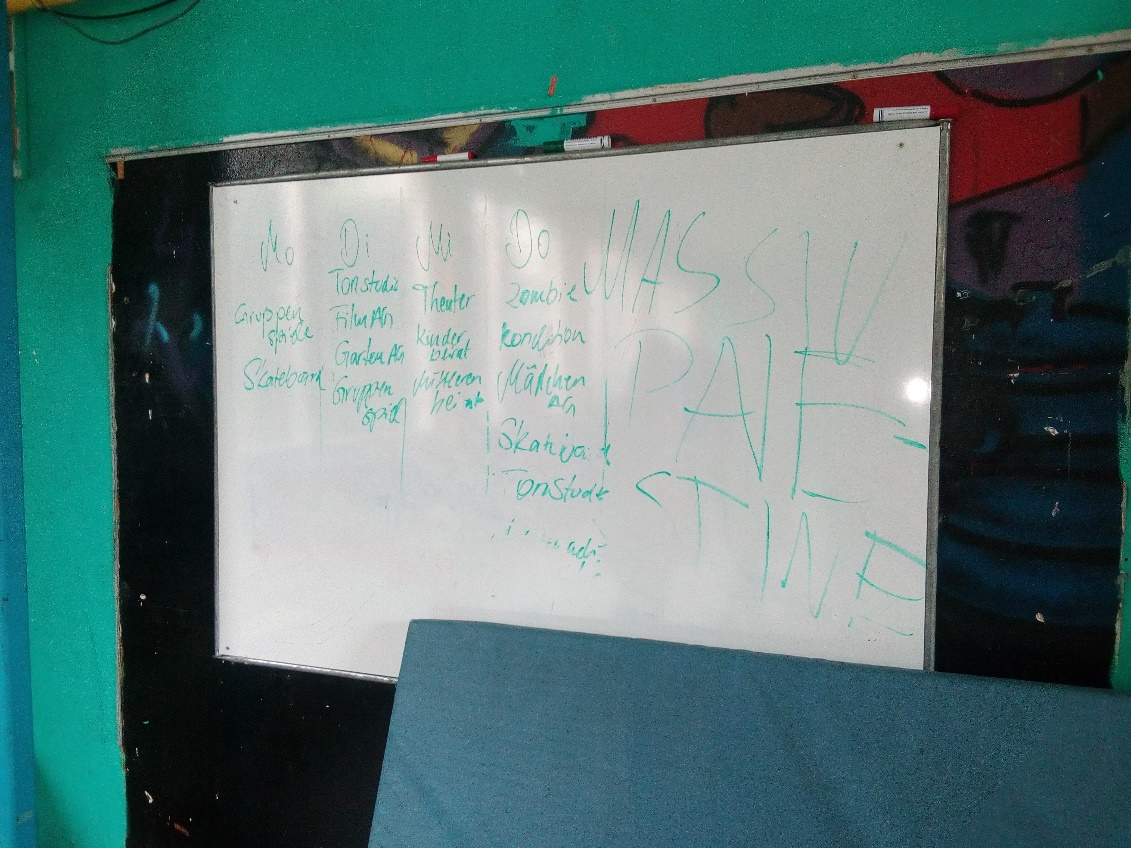 Mo
Gruppen
spiele
Skateboard
Di
Tonstudio
Film AG
Garten AG
Gruppen
spiel
Mi
Theater
Kinder
beirat
beirat
Do
Zombie
Kondition
Mädchen
AG
Tonstudio
MASSIV
PALE
STINE